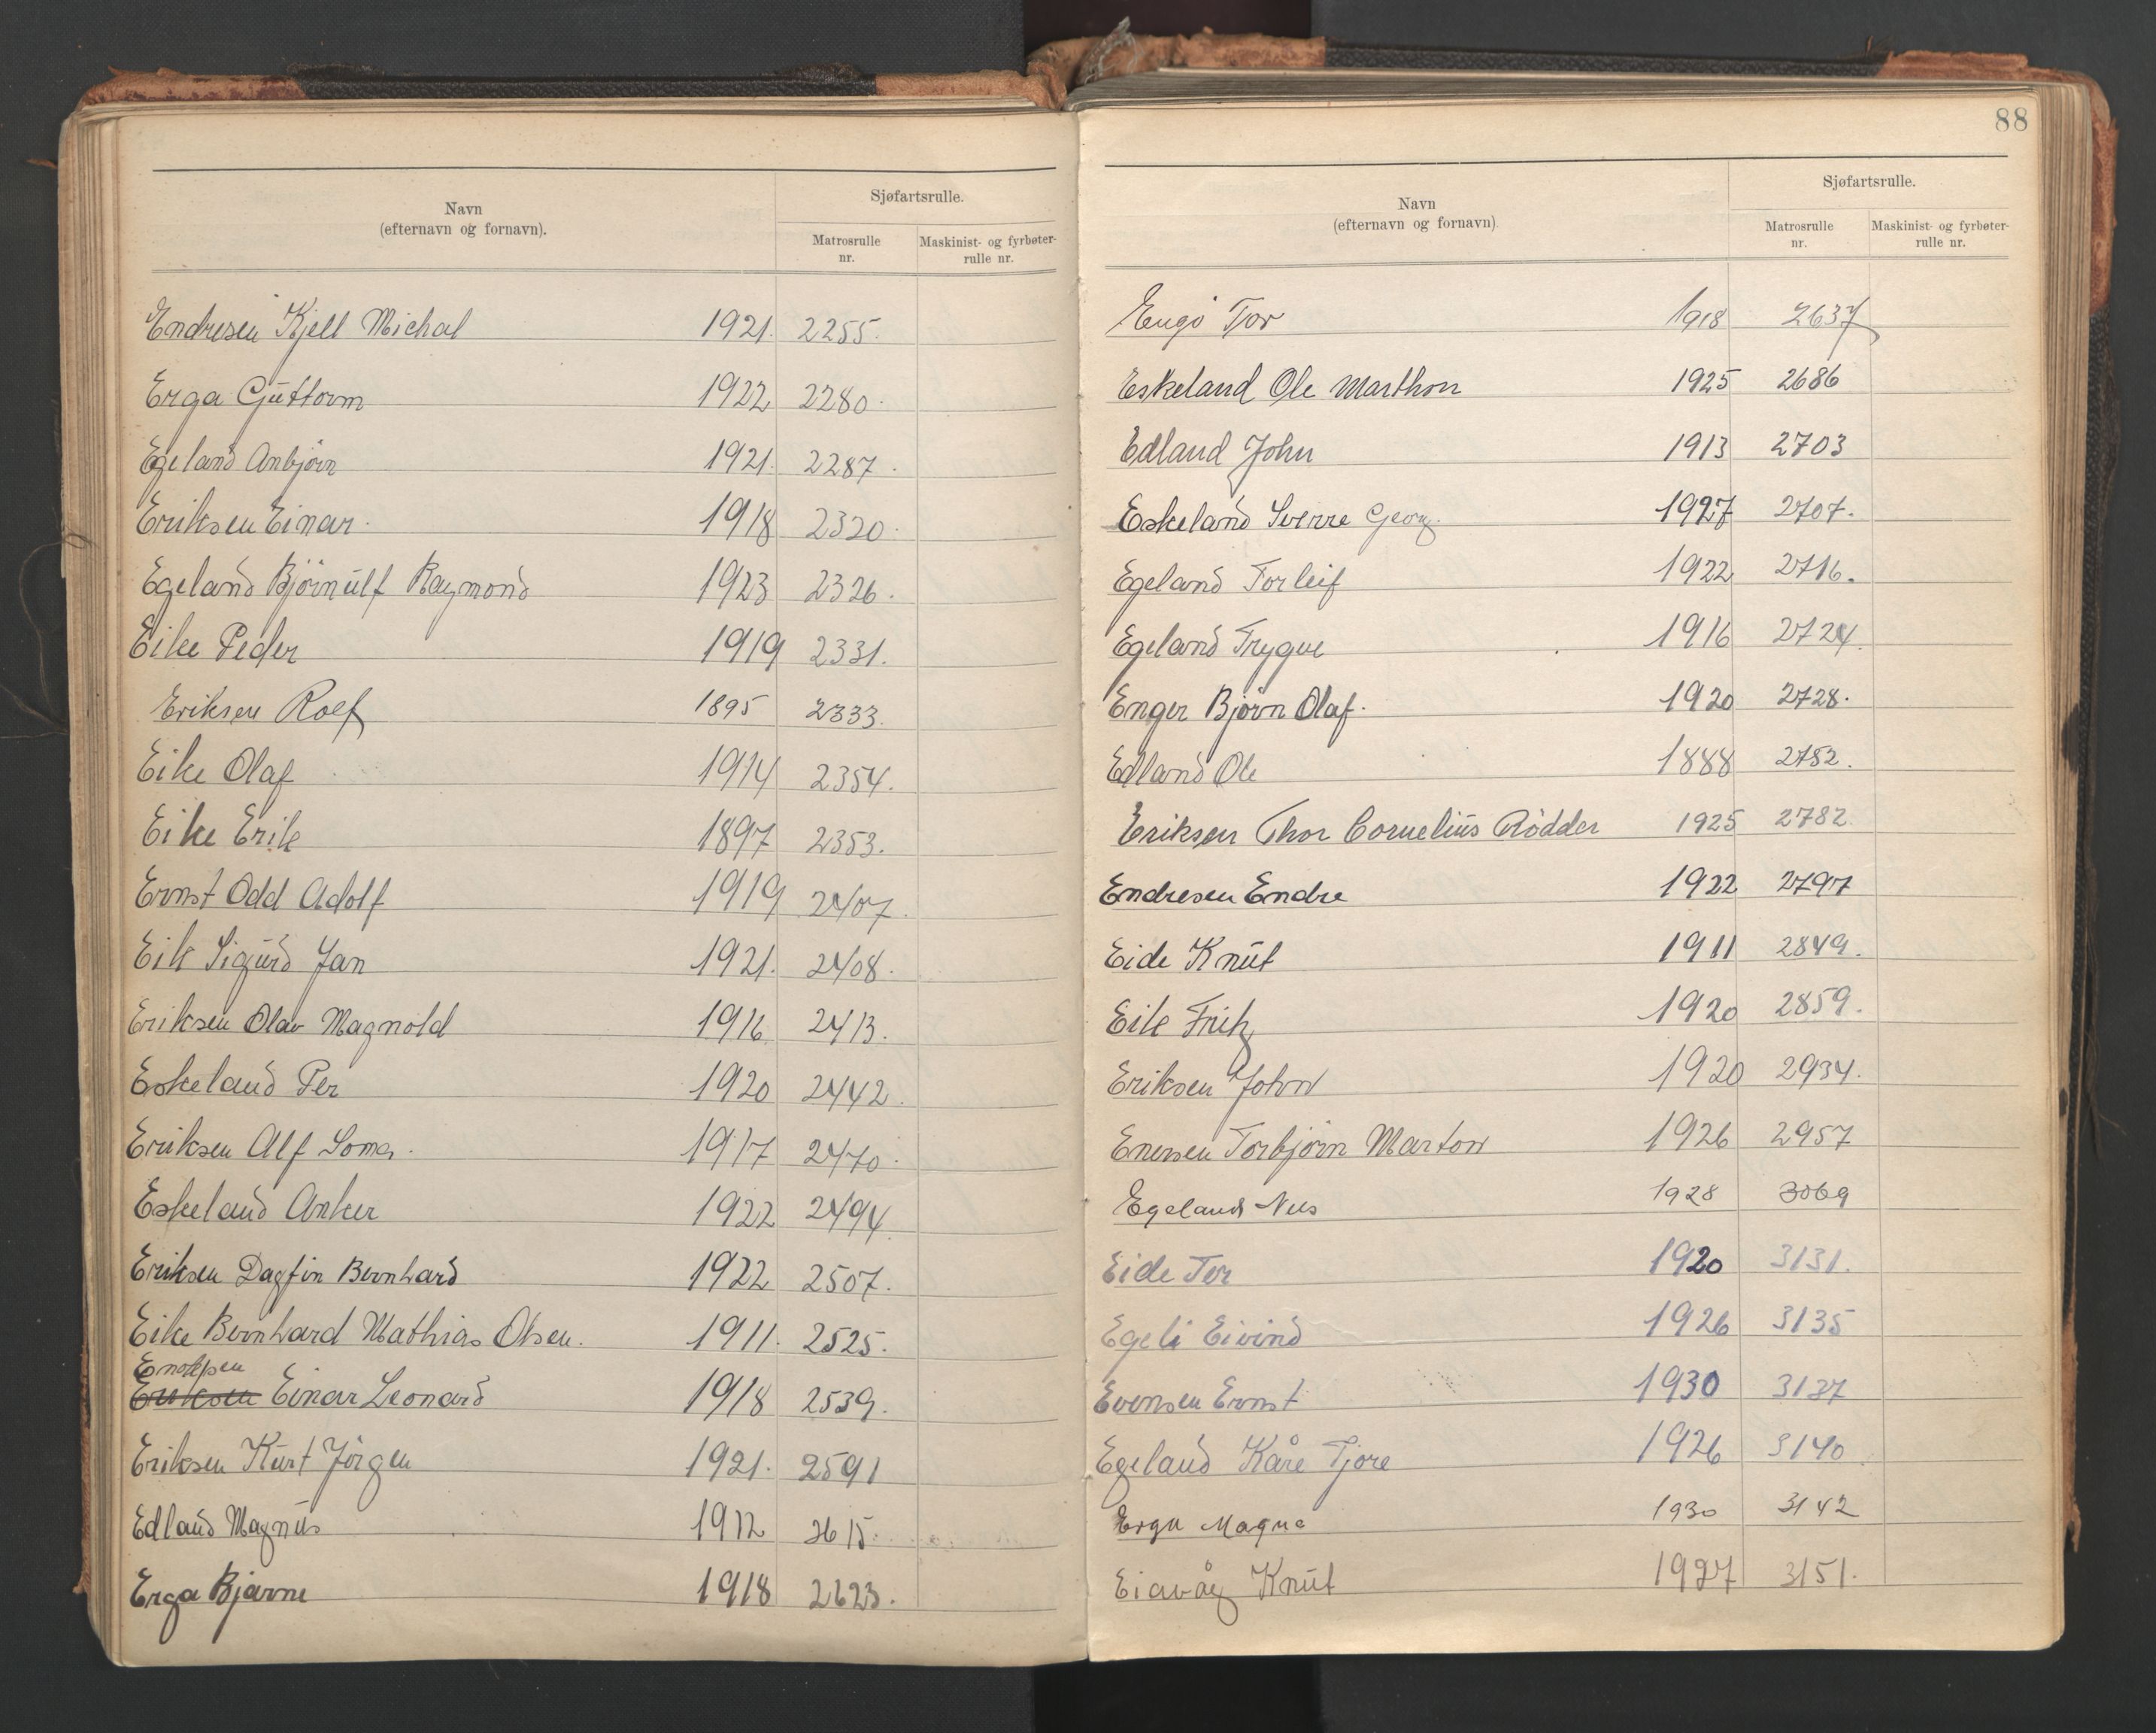 Navn
(efternavn og fornavn).
Sjøfartsrulle.
Matrosrulle
nr.
Maskinist- og fyrbøter-
rulle nr.
Endresen Kjell Michal 1921. 2255.
Erga Guttorm 1922 2280.
Egeland Anbjörn 1921. 2287.
Eriksen Einar. 1918 2320.
Egeland Björnulf Raymond 1923 2326.
Eike Peder 1919 2331.
Eriksen Rolf 1895 2333.
Eike Olaf 1914 2354.
Eike Erik 1897 2353.
Ernst Odd Adolf 1919 2407.
Eik Sigurd Jan 1921. 2408.
Eriksen Olav Magnold 1916 2413.
Eskeland Per 1920 2442.
Eriksen Alf Soma. 1917 2470.
Eskeland Anker 1922 2494.
Eriksen Dagfin Bernhard 1922 2507.
Eike Bernhard Mathias Olsen. 1911. 2525.
Enoksen
Eriksen Einar Leonard 1918 2539.
Eriksen Kurt Jörgen 1921. 2591
Edland Magnus 1912 2615.
Erga Bjarne 1918 2623.
88
Navn
(efternavn og fornavn)
Sjøfartsrulle.
Matrosrulle
nr.
Maskinist- og fyrbøter-
rulle nr.
Engö Tor 1918 2637
Eskeland Ole Marthon 1925 2686
Edland John 1913 2703
Eskeland Sverre Georg. 1927 2707.
Egeland Torleif 1922 2716.
Egeland Trygve 1916 2724.
Enger Björn Olaf. 1920 2728.
Edland Ole 1888 2752.
Eriksen Thor Cornelius Rödder 1925 2782.
Endresen Endre 1922 2797
Eide Knut 1911 2849.
Eik Fritz 1920 2859.
Eriksen John 1920 2934.
Enersen Torbjörn Marton 1926 2957
Egeland Nils 1928 3069
Eide Tor 1920 3131.
Egeli Eivind 1926 3135
Evensen Ernst 1930 3137
Egeland Kåre Tjore 1926 3140.
Erga Magne 1930 3142
Eiavåg Knut 1927 3151.